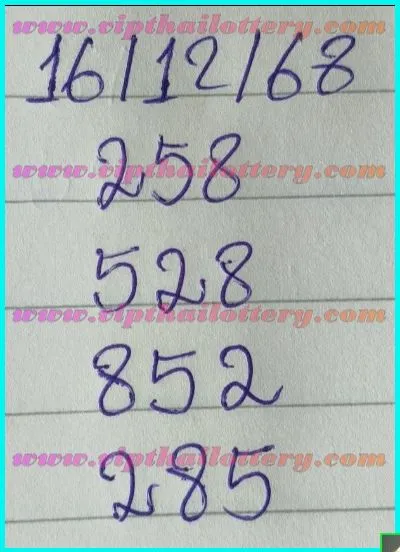 www.vipthailottery.com
16/12/68
www.vipthailottery.com
258
528
www.vipthailottery.com
852
www.vipthailottery.com
285